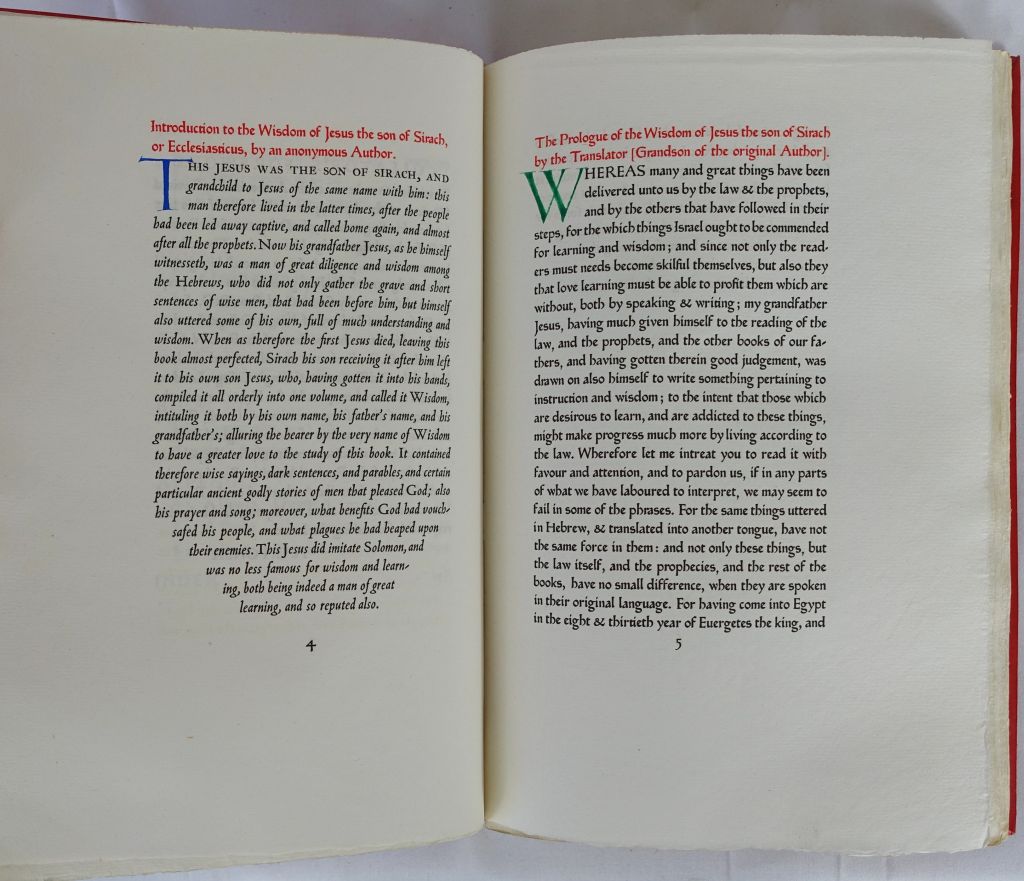 Introduction to the Wisdom of Jesus the son of Sirach,
or Ecclesiasticus, by an anonymous Author.
THIS JESUS WAS THE SON OF SIRACH, AND
grandchild to Jesus of the same name with him: this
man therefore lived in the latter times, after the people
had been led away captive, and called home again, and almost
after all the prophets. Now his grandfather Jesus, as he himself
witnesseth, was a man of great diligence and wisdom among
the Hebrews, who did not only gather the grave and short
sentences of wise men, that had been before him, but himself
also uttered some of his own, full of much understanding and
wisdom. When as therefore the first Jesus died, leaving this
book almost perfected, Sirach his son receiving it after him left
it to his own son Jesus, who, having gotten it into his hands,
compiled it all orderly into one volume, and called it Wisdom,
intituling it both by his own name, his father's name, and his
grandfather's; alluring the hearer by the very name of Wisdom
to have a greater love to the study of this book. It contained
therefore wise sayings, dark sentences, and parables, and certain
particular ancient godly stories of men that pleased God; also
his prayer and song; moreover, what benefits God had vouch-
safed his people, and what plagues he had heaped upon
their enemies. This Jesus did imitate Solomon, and
was no less famous for wisdom and learn-
ing, both being indeed a man of great
learning, and so reputed also.
4
The Prologue of the Wisdom of Jesus the son of Sirach
by the Translator [Grandson of the original Author].
WHEREAS many and great things have been
delivered unto us by the law & the prophets,
and by the others that have followed in their
steps, for the which things Israel ought to be commended
for learning and wisdom; and since not only the read-
ers must needs become skilful themselves, but also they
that love learning must be able to profit them which are
without, both by speaking & writing; my grandfather
Jesus, having much given himself to the reading of the
law, and the prophets, and the other books of our fa-
thers, and having gotten therein good judgement, was
drawn on also himself to write something pertaining to
instruction and wisdom; to the intent that those which
are desirous to learn, and are addicted to these things,
might make progress much more by living according to
the law. Wherefore let me intreat you to read it with
favour and attention, and to pardon us, if in any parts
of what we have laboured to interpret, we may seem to
fail in some of the phrases. For the same things uttered
in Hebrew, & translated into another tongue, have not
the same force in them: and not only these things, but
the law itself, and the prophecies, and the rest of the
books, have no small difference, when they are spoken
in their original language. For having come into Egypt
in the eight & thirtieth year of Euergetes the king, and
5